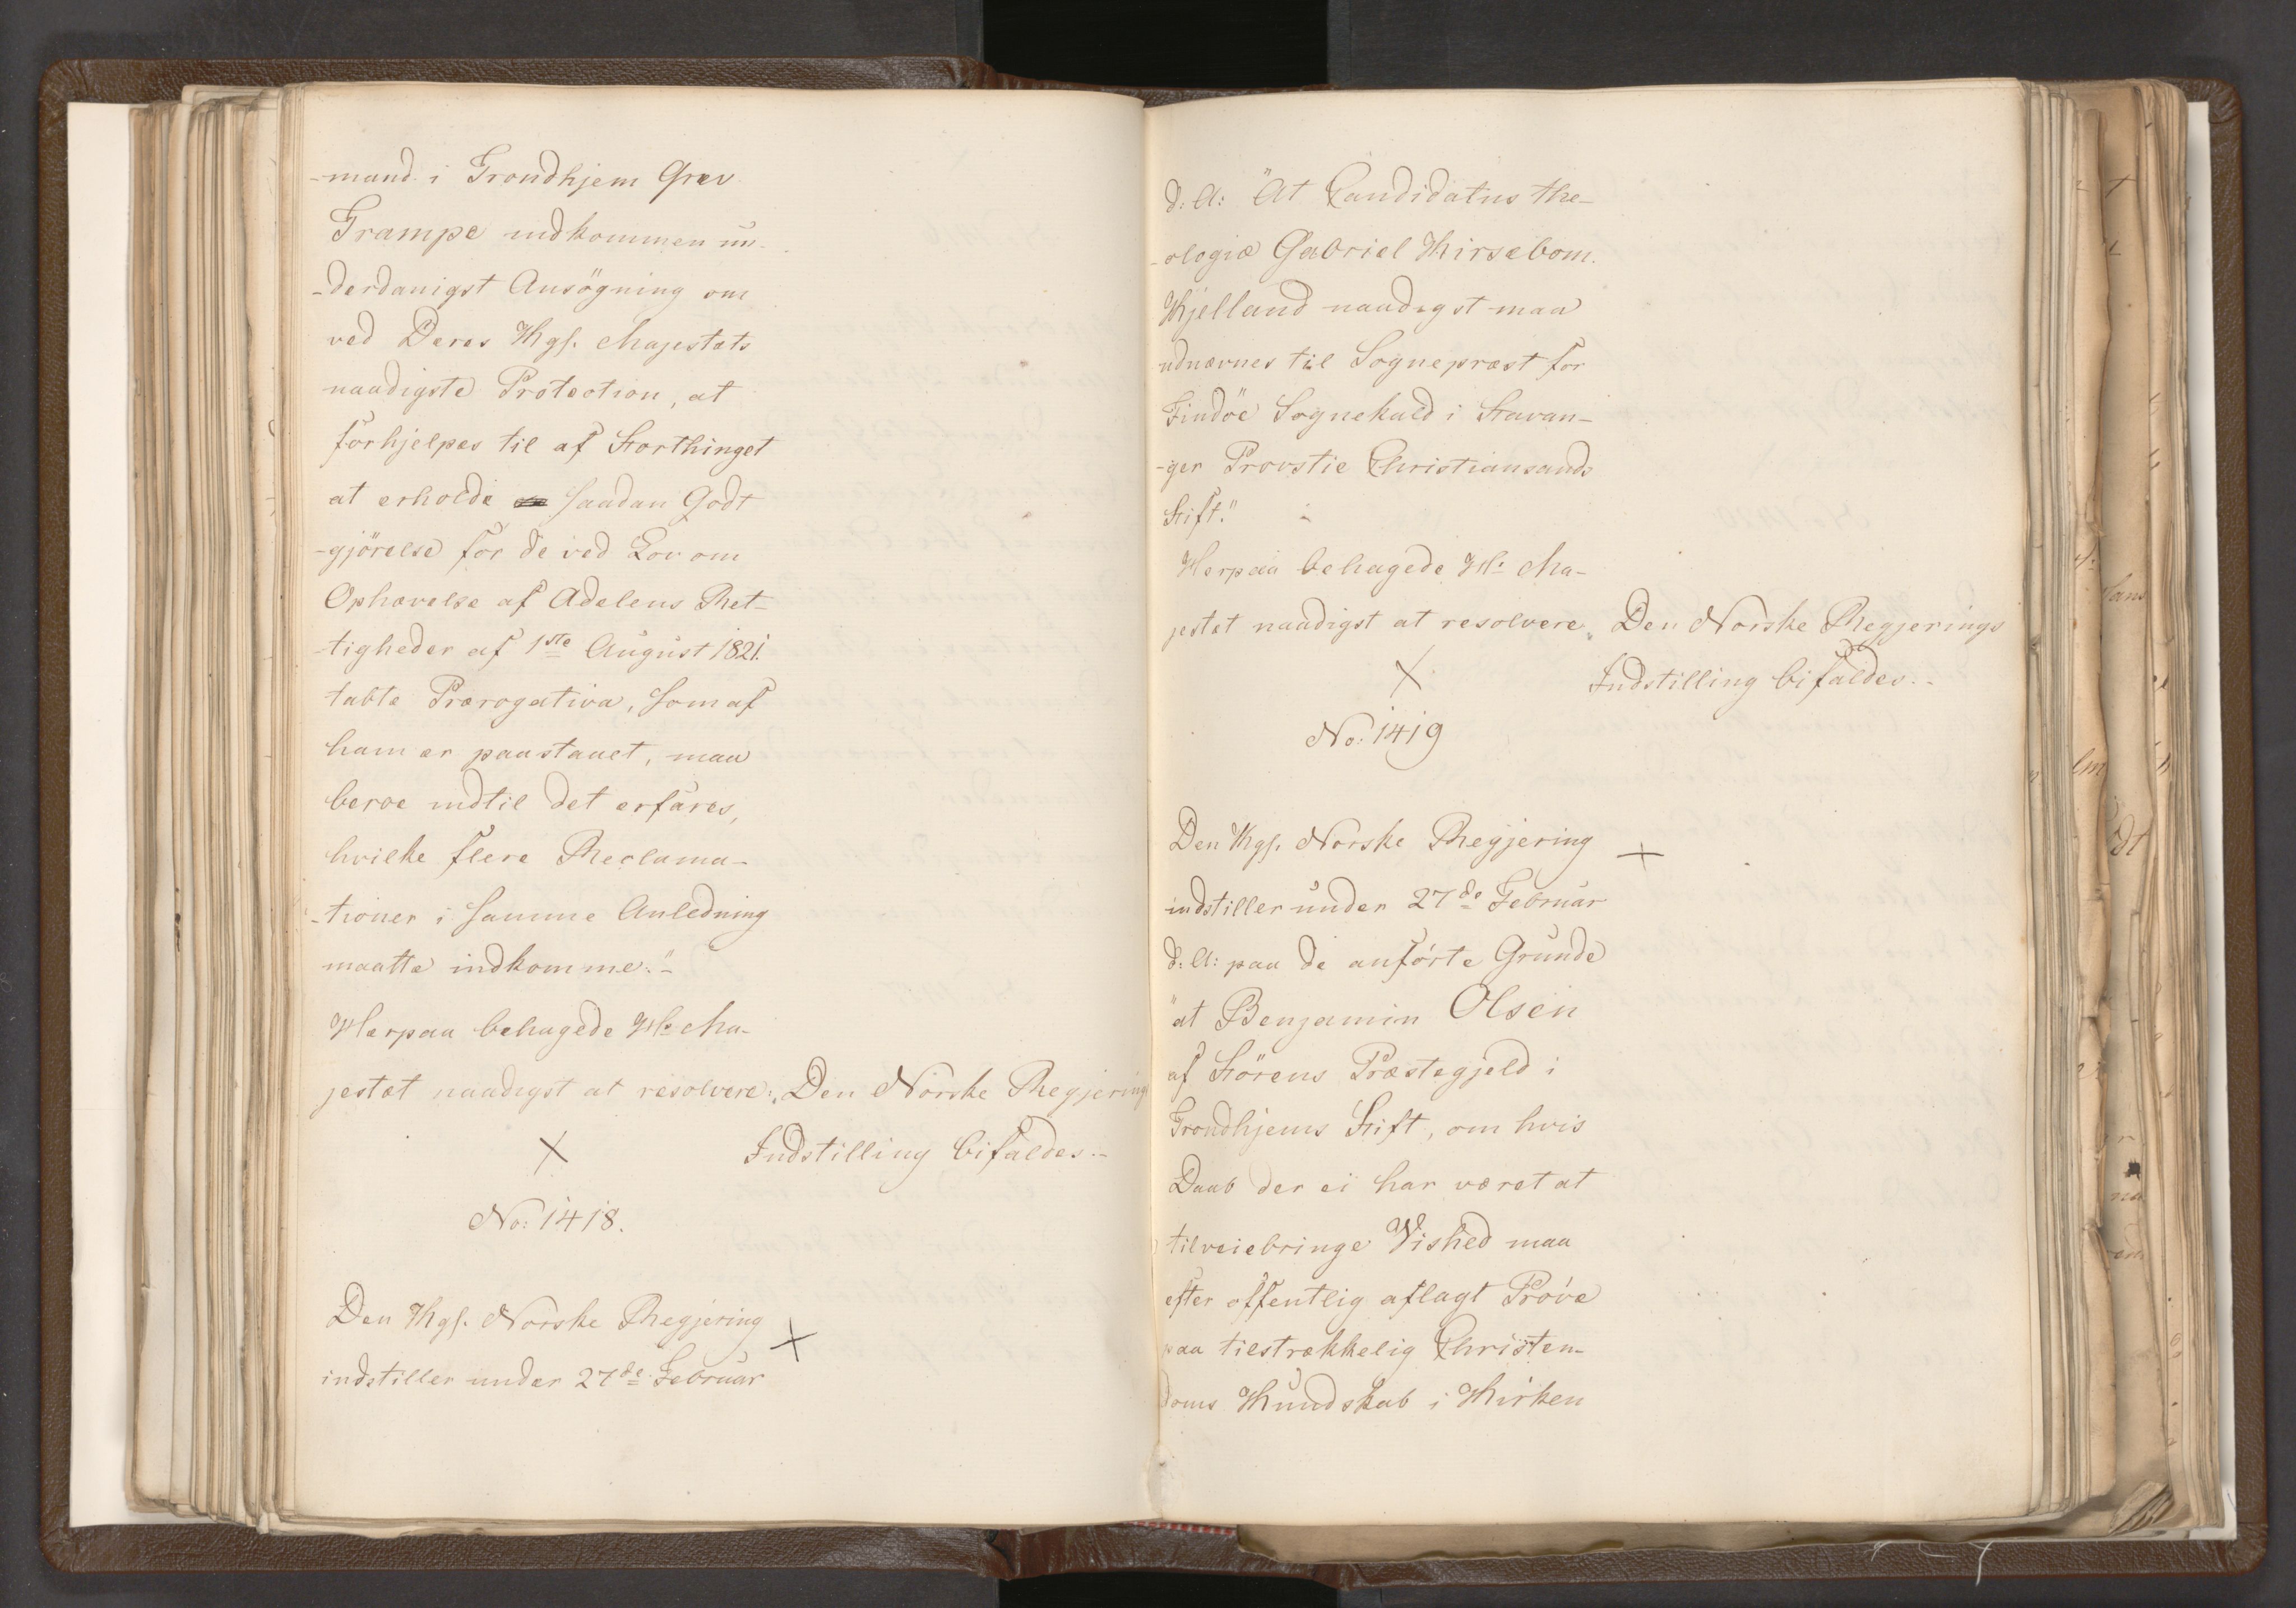 -mand i Trondhjem Grev
Trampe indkommen un-
-derdanigst Ansögning om
ved Deres Kgs. Majestæts
naadigste Protection, at
forhjelpes til af Storthinget
at erholde saadan Godt
-gjörelse for de ved Lov om
Ophævelse af Adelens Ret-
-tigheder af 1ste August 1821.
tabte Prærogativa, som af
ham er paastaaet, maa
beroe indtil det erfares,
hvilke flere Reclama-
-tioner i samme Anledning
maatte indkomme."-
Herpaa behagede Hs. Ma-
jestæt naadigst at resolvere: "Den Norske Regjerings
Indstilling bifaldes.-
No: 1418.
Den Kgs. Norske Regjering
indstiller under 27de Februar
d: A: "At Candidatus the-
-ologiæ Gabriel Kirsebom
Kjelland naadigst maa
udnævnes til Sognepræst for
Findöe Sognekald i Stavan-
-ger Provstie Christiansands
Stift."
Herpaa behagede Hs. Ma-
jestæt naadigst at resolvere "Den Norske Regjerings
Indstilling bifaldes.-
No: 1419
Den Kgs. Norske Regjering
indstiller under 27de Februar
d: A: paa de anförte Grunde
"at Benjamin Olsen
af Störens Præstegjeld i
Trondhjems Stift, om hvis
Daab der ei har været at
tilveiebringe Vished maa
efter offentlig aflagt Pröve
paa tilstrækkelig Christen-
doms Kundskab i Kirken